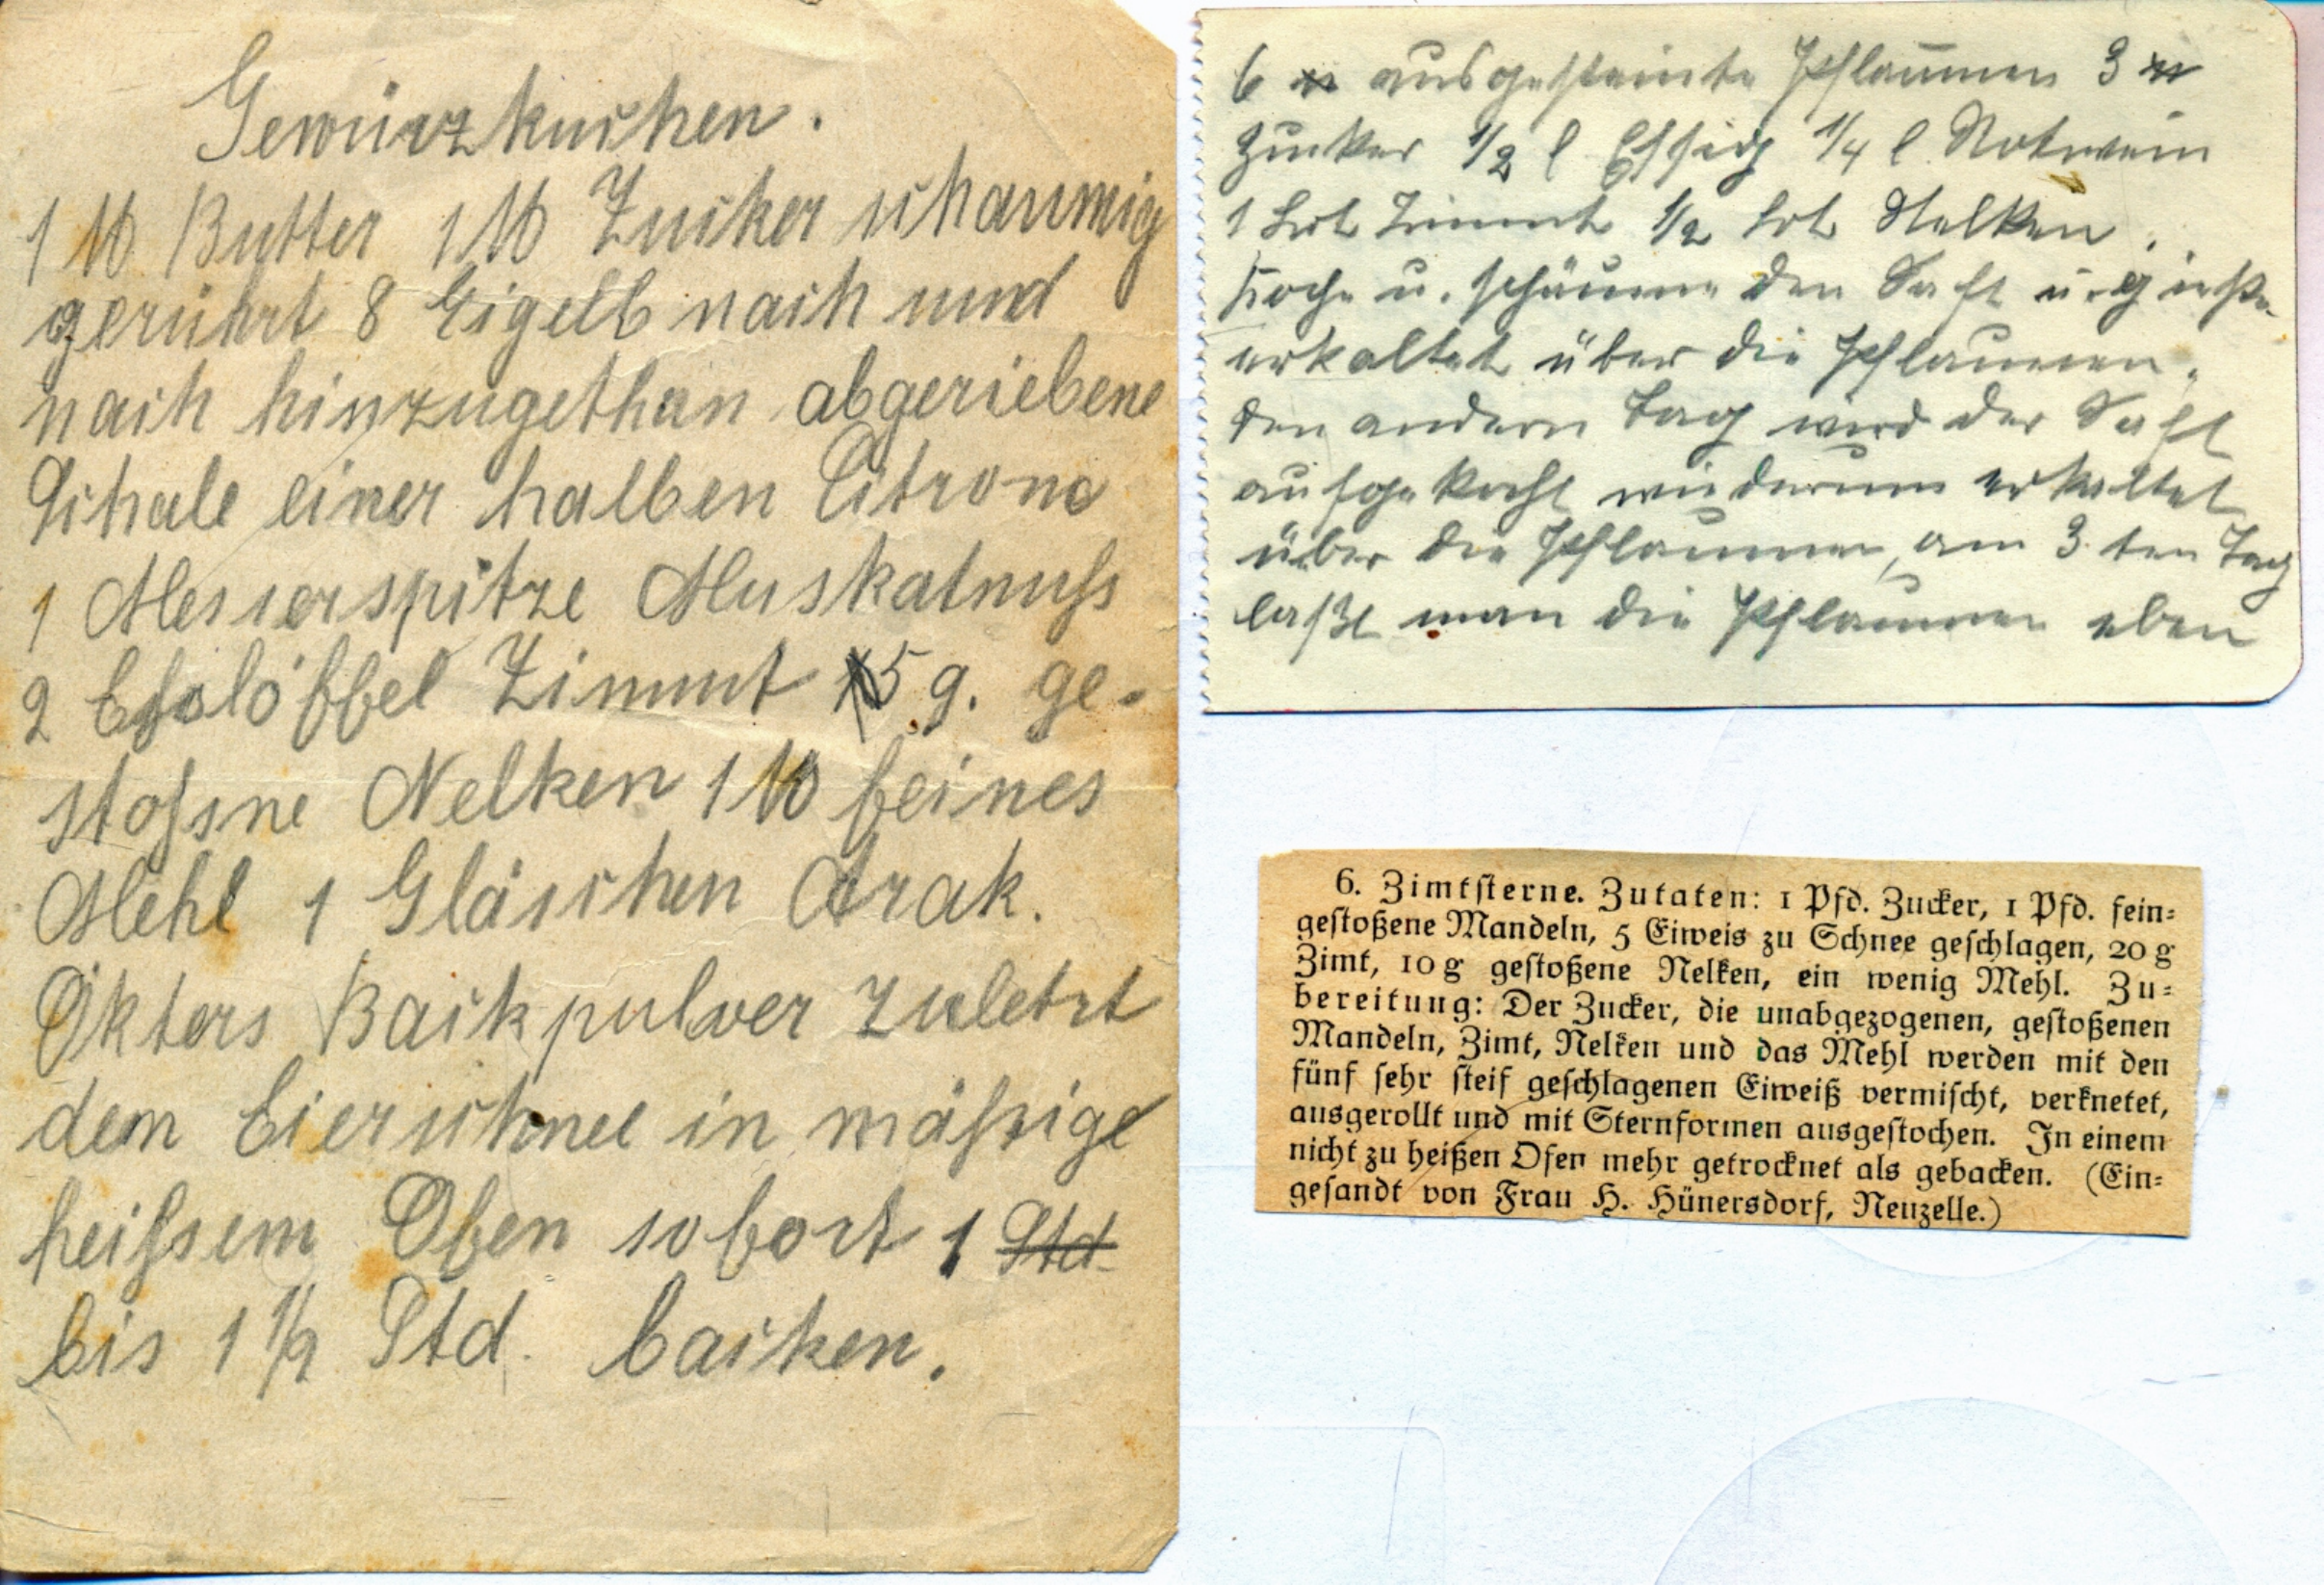 Gewürzkuchen.
1 ℔ Butter 1 ℔ Zucker schaumig
gerührt 8 Eigelb nach und
nach hinzugethan abgeriebene
Schale einer halben Citrone
1 Messerspitze Muskatnuſs
2 Eſslöffel Zimmt 5 g. ge-
stoſsne Nelken 1 ℔ feines
Mehl 1 Gläschen Arak.
Ökters Backpulver zuletzt
dem Eierschnee in mäſsige
heiſsem Ofen sofort 1 Std
bis 1 1/2 Std. backen.
6 ℔ ausgesteinte Pflaumen 3 ℔
Zucker 1/2 l Essig 1/4 l Rotwein
1 Lot Zimmt 1/2 Lot Nelken.
Koche u. schäume den Saft u. gieße
erkaltet über die Pflaumen.
den andern Tag wird der Saft
aufgekocht wiederum erkaltet
über die Pflaumen, am 3ten Tag
laßt man die Pflaumen eben
6. Zimtſterne. Zutaten: 1 Pfd. Zucker, 1 Pfd. fein-
geſtoßene Mandeln, 5 Eiweis zu Schnee geſchlagen, 20 g
Zimt, 10 g geſtoßene Nelken, ein wenig Mehl. Zu-
bereitung: Der Zucker, die unabgezogenen, geſtoßenen
Mandeln, Zimt, Nelken und das Mehl werden mit den
fünf ſehr ſteif geſchlagenen Eiweiß vermiſcht, verknetet,
ausgerollt und mit Sternformen ausgeſtochen. In einem
nicht zu heißen Ofen mehr getrocknet als gebacken. (Ein-
geſandt von Frau H. Hünersdorf, Neuzelle.)